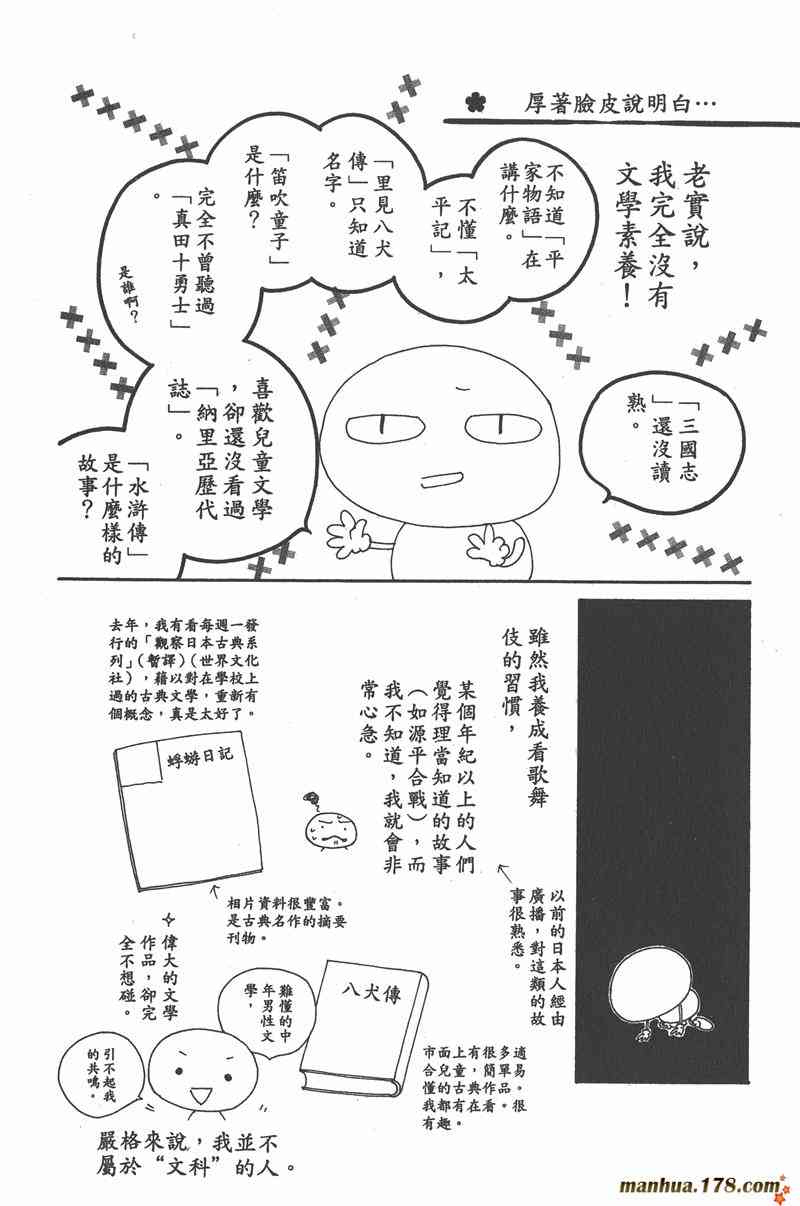 厚著臉皮說明白…
老實說，
我完全沒有
文學素養！
「三國志
」還沒讀
熟。
不知道「平
家物語」在
講什麼。
不懂「太
平記」，
「里見八犬
傳」只知道
名字。
「笛吹童子」
是什麼？
完全不曾聽過
「真田十勇士」
。
是誰啊？
喜歡兒童文學
，卻還沒看過
「納里亞歷代
誌」。
「水滸傳」
是什麼樣的
故事？
雖然我養成看歌舞
伎的習慣，
某個年紀以上的人們
覺得理當知道的故事
（如源平合戰），而
我不知道，我就會非
常心急。
以前的日本人經由
廣播，對這類的故
事很熟悉。
去年，我有看每週一發
行的「觀察日本古典系
列」（暫譯）（世界文化
社），藉以對在學校上
過的古典文學，重新有
個概念，真是太好了。
蜉蝣日記
相片資料很豐富。
是古典名作的摘要
刊物。
偉大的文學
作品，卻完
全不想碰。
難懂的中
年男性文
學，
引不起我
的共鳴。
八犬傳
市面上有很多適
合兒童，簡單易
懂的古典作品。
我都有在看。很
有趣。
嚴格來說，我並不
屬於“文科”的人。
manhua.178.com